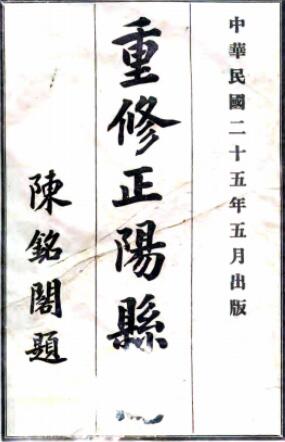 中華民國二十五年五月出版
重修正陽縣
陳銘閣題